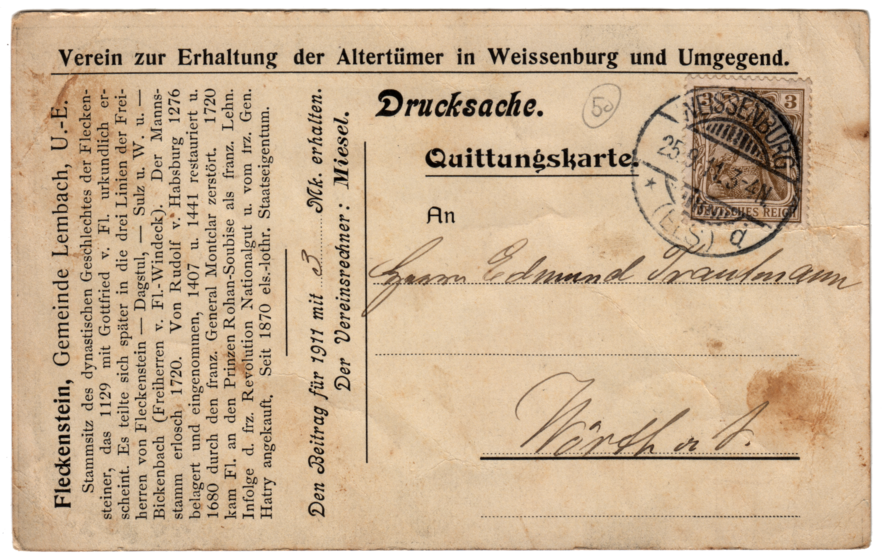 Verein zur Erhaltung der Altertümer in Weissenburg und Umgegend.
Fleckenstein, Gemeinde Lembach, U.-E.
Stammsitz des dynastischen Geschlechtes der Flecken-
steiner, das 1129 mit Gottfried v. Fl. urkundlich er-
scheint. Es teilte sich später in die drei Linien der Frei-
herren von Fleckenstein — Dagstul, — Sulz u. W. u. —
Bickenbach (Freiherren v. Fl.-Windeck). Der Manns-
stamm erlosch 1720. Von Rudolf v. Habsburg 1276
belagert und eingenommen, 1407 u. 1441 restauriert u.
1680 durch den franz. General Montclar zerstört. 1720
kam Fl. an den Prinzen Rohan-Soubise als franz. Lehn.
Infolge d. frz. Revolution Nationalgut u. vom frz. Gen.
Hatry angekauft, Seit 1870 els.-lothr. Staatseigentum.
Den Beitrag für 1911 mit 3 Mk. erhalten.
Der Vereinsrechner: Miesel.
Drucksache.
50
Quittungskarte.
An
Herrn Edmund Trautmann
Wörth a S.
3
DEUTSCHES REICH
WEISSENBURG
11.3-4N.
* (ELS.) d